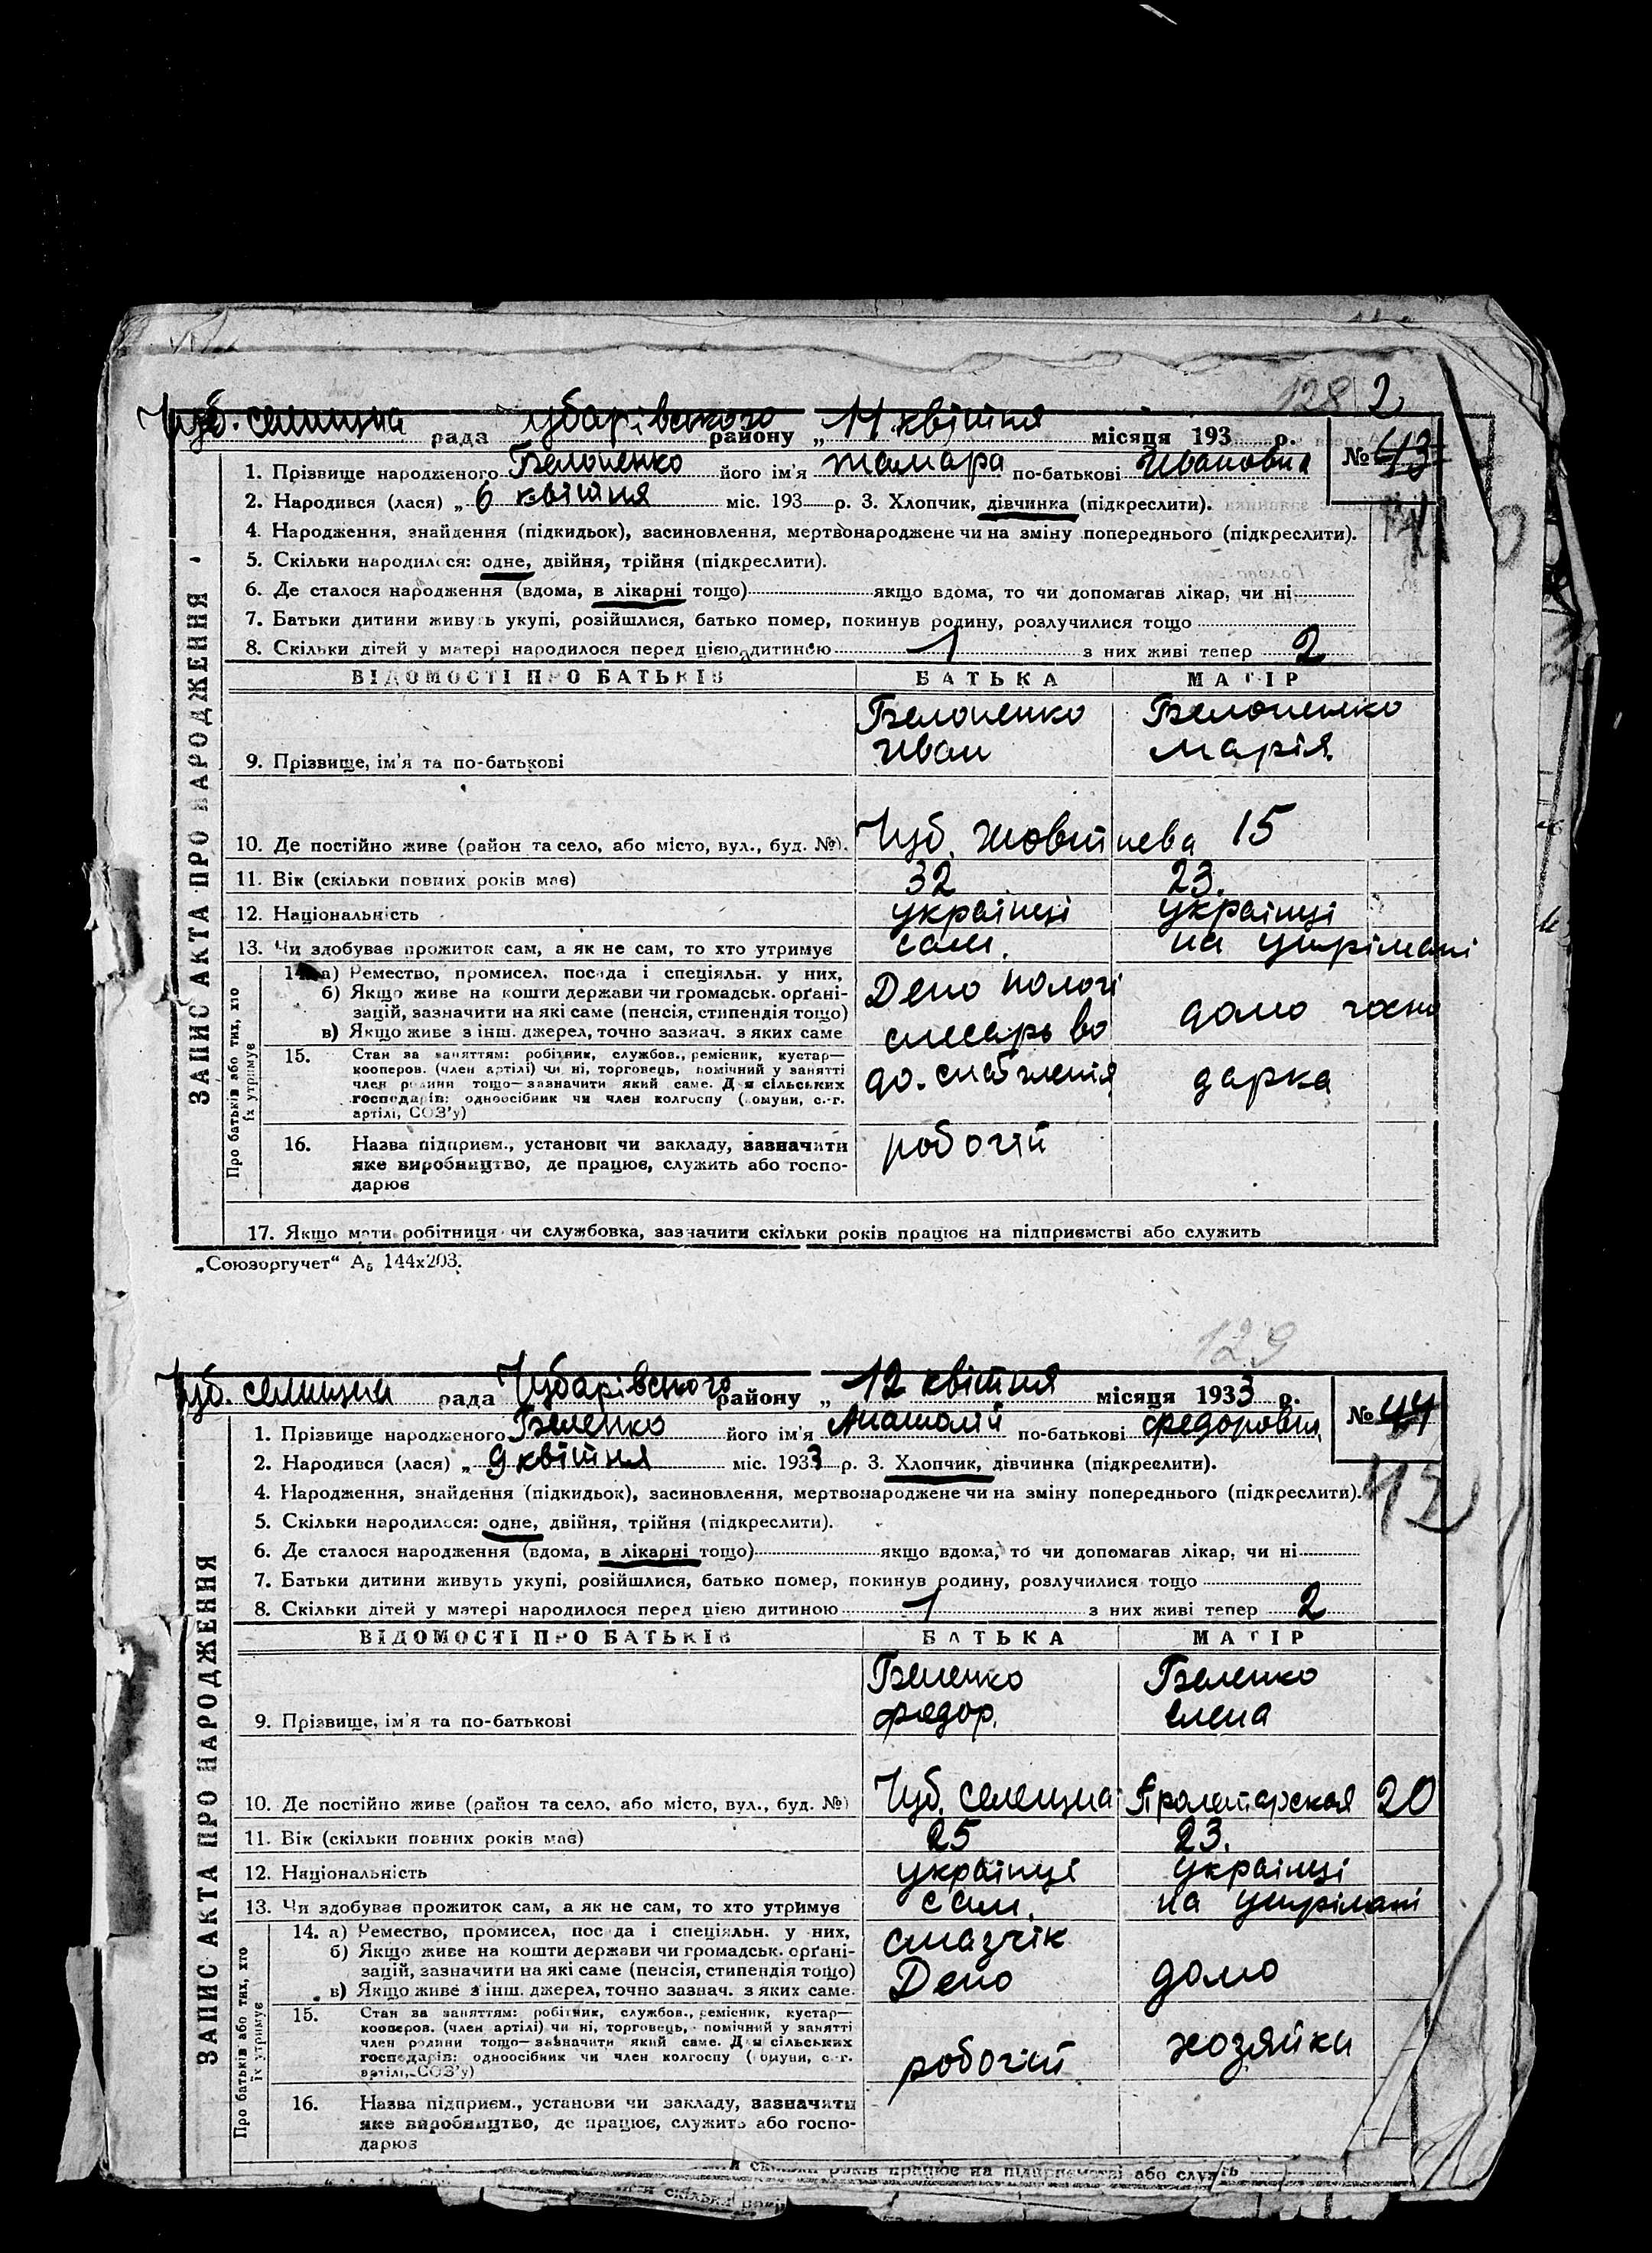 128 2
Чуб. селищна рада Чубарівського району „ 11 квітня місяця 193 р. № 43
1. Прізвище народженого Белопенко його ім'я Тамара по-батькові Ивановна
2. Народився (лася) „ 6 квітня міс. 193 р. 3. Хлопчик, дівчинка (підкреслити).
4. Народження, знайдення (підкидьок), засиновлення, мертвонароджене чи на зміну попереднього (підкреслити).
5. Скільки народилося: одне, двійня, трійня (підкреслити).
6. Де сталося народження (вдома, в лікарні тощо) якщо вдома, то чи допомагав лікар, чи ні
7. Батьки дитини живуть укупі, розійшлися, батько помер, покинув родину, розлучилися тощо
8. Скільки дітей у матері народилося перед цією дитиною 1 з них живі тепер 2
ЗАПИС АКТА ПРО НАРОДЖЕННЯ
ВІДОМОСТІ ПРО БАТЬКІВ БАТЬКА МАТІР
Белопенко Белопенко
9. Прізвище, ім'я та по-батькові Иван Марія
10. Де постійно живе (район та село, або місто, вул., буд. №). Чуб. Жовтнева 15
11. Вік (скільки повних років має) 32 23.
12. Національність українці українці
13. Чи здобуває прожиток сам, а як не сам, то хто утримує сам. на утрімані
Про батьків або тих, хто їх утримує
14. а) Ремество, промисел, посада і спеціяльн. у них,
б) Якщо живе на кошти держави чи громадськ. орґані- Депо Пологі
зацій, зазначити на які саме (пенсія, стипендія тощо) домо госпо
в) Якщо живе з інш. джерел, точно зазнач. з яких саме слесарь во
15. Стан за заняттям: робітник, службов., ремісник, кустар—
кооперов. (член артілі) чи ні, торговець, помічний у занятті до. снабженія дарка
член родини тощо—зазначити який саме. Для сільських
господарів: одноосібник чи член колгоспу (комуни, с.-г.
артілі, СОЗ'у)
16. Назва підприєм., установи чи закладу, зазначити робочій
яке виробництво, де працює, служить або госпо-
дарює
17. Якщо мати робітниця чи службовка, зазначити скільки років працює на підприємстві або служить
„Союзоргучет“ А₅ 144х203.
129
Чуб. селищна рада Чубарівського району „ 12 квітня місяця 1933 р. № 44
1. Прізвище народженого Беленко його ім'я Анатолій по-батькові Федоровіч
2. Народився (лася) „ 9 квітня міс. 1933 р. 3. Хлопчик, дівчинка (підкреслити).
42
4. Народження, знайдення (підкидьок), засиновлення, мертвонароджене чи на зміну попереднього (підкреслити).
5. Скільки народилося: одне, двійня, трійня (підкреслити).
6. Де сталося народження (вдома, в лікарні тощо) якщо вдома, то чи допомагав лікар, чи ні
7. Батьки дитини живуть укупі, розійшлися, батько помер, покинув родину, розлучилися тощо
8. Скільки дітей у матері народилося перед цією дитиною 1 з них живі тепер 2
ЗАПИС АКТА ПРО НАРОДЖЕННЯ
ВІДОМОСТІ ПРО БАТЬКІВ БАТЬКА МАТІР
Беленко Беленко
9. Прізвище, ім'я та по-батькові Федор. Елена
10. Де постійно живе (район та село, або місто, вул., буд. №) Чуб. селещна Пролетарская 20
11. Вік (скільки повних років має) 25 23.
12. Національність українці українці
13. Чи здобуває прожиток сам, а як не сам, то хто утримує сам. на утрімані
Про батьків або тих, хто їх утримує
14. а) Ремество, промисел, посада і спеціяльн. у них, смазчік
б) Якщо живе на кошти держави чи громадськ. орґані-
зацій, зазначити на які саме (пенсія, стипендія тощо) Депо домо
в) Якщо живе з інш. джерел, точно зазнач. з яких саме.
15. Стан за заняттям: робітник, службов., ремісник, кустар—
кооперов. (член артілі) чи ні, торговець, помічний у занятті
член родини тощо—зазначити який саме. Для сільських хозяйка
господарів: одноосібник чи член колгоспу (комуни, с.-г. робочій
артілі, СОЗ'у)
16. Назва підприєм., установи чи закладу, зазначити
яке виробництво, де працює, служить або госпо-
дарює
скільки років працює на підприємстві або служить